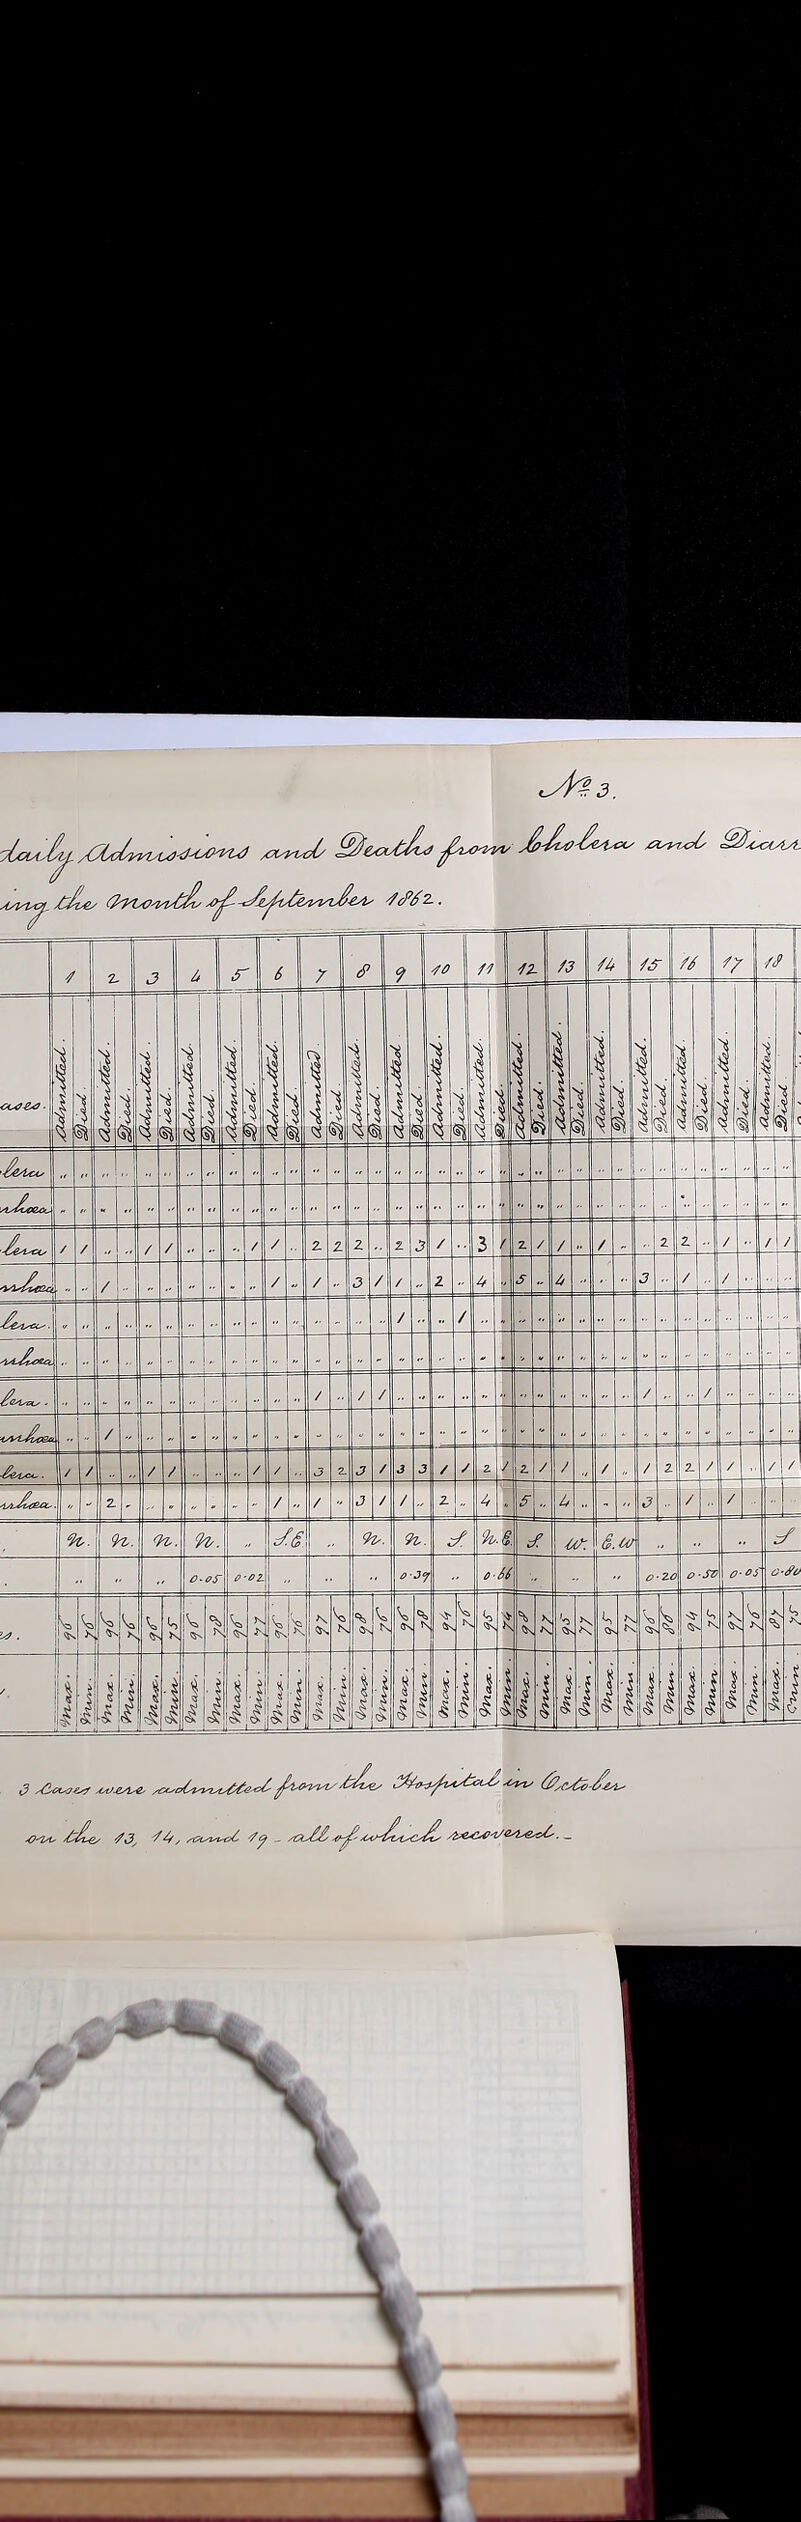 No 3.
daily Admissions and Deaths from Cholera and Diarr
ing the Month of September 1862.
1 2 3 4 5 6 7 8 9 10 11 12 13 14 15 16 17 18
ases. Admitted. Died. Admitted. Died. Admitted. Died. Admitted. Died. Admitted. Died. Admitted. Died. Admitted. Died. Admitted. Died. Admitted. Died. Admitted. Died. Admitted. Died. Admitted. Died. Admitted. Died. Admitted. Died. Admitted. Died. Admitted. Died. Admitted. Died. Admitted. Died.
lera " " " " " " " " " " " " " " " " " " " " " " " " " " " " " " " " " " " "
rhœa " " " " " " " " " " " " " " " " " " " " " " " " " " " " " " " " " " " "
lera 1 1 " " 1 1 " " " 1 1 " 2 2 2 " 2 3 1 " 3 1 2 1 1 " 1 " " 2 2 " 1 " 1 1
rrhœa " " 1 " " " " " " " 1 " 1 " 3 1 1 " 2 " 4 " 5 " 4 " " " 3 " 1 " 1 " " "
lera. " " " " " " " " " " " " " " " " 1 " " 1 " " " " " " " " " " " " " " " "
rrhœa " " " " " " " " " " " " " " " " " " " " " " " " " " " " " " " " " " " "
lera. " " " " " " " " " " " " 1 " 1 1 " " " " " " " " " " " " 1 " " 1 " " " "
rrhœa " " 1 " " " " " " " " " " " " " " " " " " " " " " " " " " " " " " " " "
lera. 1 1 " " 1 1 " " " 1 1 " 3 2 3 1 3 3 1 1 2 1 2 1 1 " 1 " 1 2 2 1 1 " 1 1
rrhœa. " " 2 " " " " " " " 1 " 1 " 3 1 1 " 2 " 4 " 5 " 4 " " " 3 " 1 " 1 " " "
N. N. N. N. " S.E " N. N. S. N.E. S. W. E.W " " " S
" " " 0.05 0.02 " " " 0.39 " 0.66 " " " 0.20 0.50 0.05 0.80
es. 96 76 96 76 96 75 96 78 96 77 96 76 97 76 98 76 96 78 94 76 95 74 98 77 95 77 95 77 96 86 94 75 97 76 87 75
Max. Min. Max. Min. Max. Min. Max. Min. Max. Min. Max. Min. Max. Min. Max. Min. Max. Min. Max. Min. Max. Min. Max. Min. Max. Min. Max. Min. Max. Min. Max. Min. Max. Min. Max. Min.
3 Cases were admitted from the Hospital in October
on the 13, 14, and 19 - all of which recovered. -